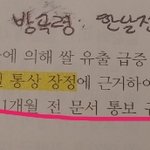 방곡령
에 의해 쌀 유출 급증
통상 장정에 근거하여
1개월 전 문서 통보